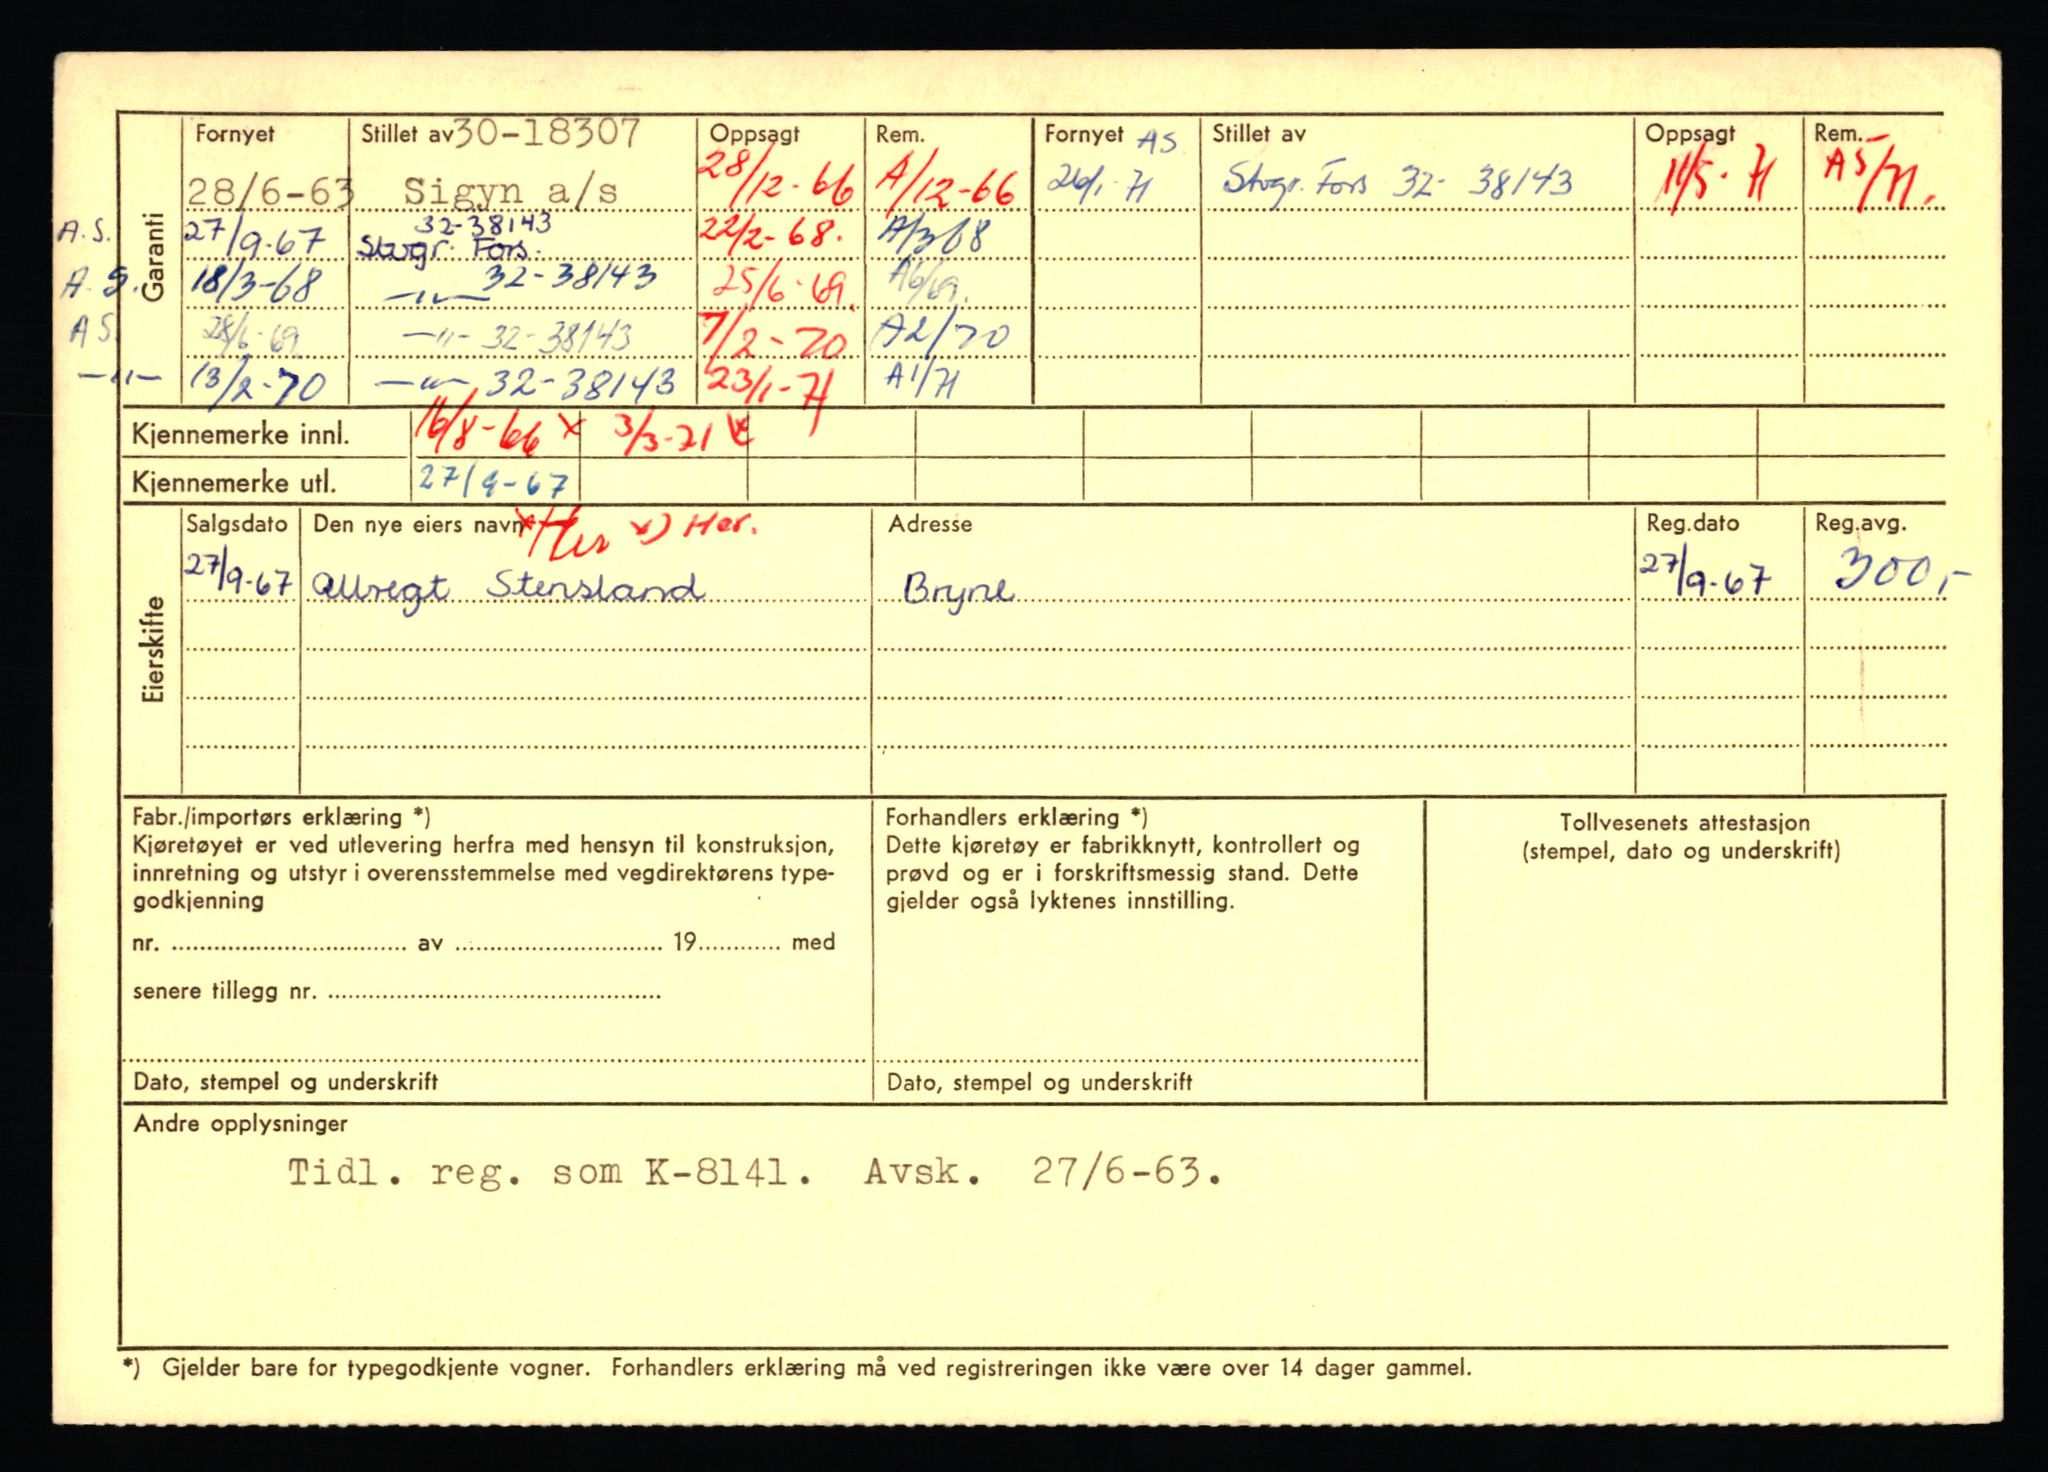 Garanti
Fornyet Stillet av 30-18307 Oppsagt Rem. Fornyet AS Stillet av Oppsagt Rem.
28/6-63 Sigyn a/s 28/12-66 A/12-66 26/1-71 Stvgr. Fors 32-38143 11/5-71 A5/71.
A.S. 27/9-67 32-38143 Stvgr. Fors. 22/2-68. A/368
A.S. 18/3-68 —"— 32-38143 25/6-69. A6/69.
AS. 28/6-69 —"— 32-38143 7/2-70 A2/70
—"— 13/2-70 —"— 32-38143 23/1-71 A1/71
Kjennemerke innl. 16/8-66 x 3/3-71 x
Kjennemerke utl. 27/9-67
Eierskifte
Salgsdato Den nye eiers navn x Her x) Her. Adresse Reg.dato Reg.avg.
27/9-67 Ollregt Stensland Bryne 27/9-67 300,-
Fabr./importørs erklæring *)
Kjøretøyet er ved utlevering herfra med hensyn til konstruksjon,
innretning og utstyr i overensstemmelse med vegdirektørens type-
godkjenning
nr. .............................. av .......................... 19........... med
senere tillegg nr. ..........................................
Dato, stempel og underskrift
Forhandlers erklæring *)
Dette kjøretøy er fabrikknytt, kontrollert og
prøvd og er i forskriftsmessig stand. Dette
gjelder også lyktenes innstilling.
Dato, stempel og underskrift
Tollvesenets attestasjon
(stempel, dato og underskrift)
Andre opplysninger
Tidl. reg. som K-8141. Avsk. 27/6-63.
*) Gjelder bare for typegodkjente vogner. Forhandlers erklæring må ved registreringen ikke være over 14 dager gammel.